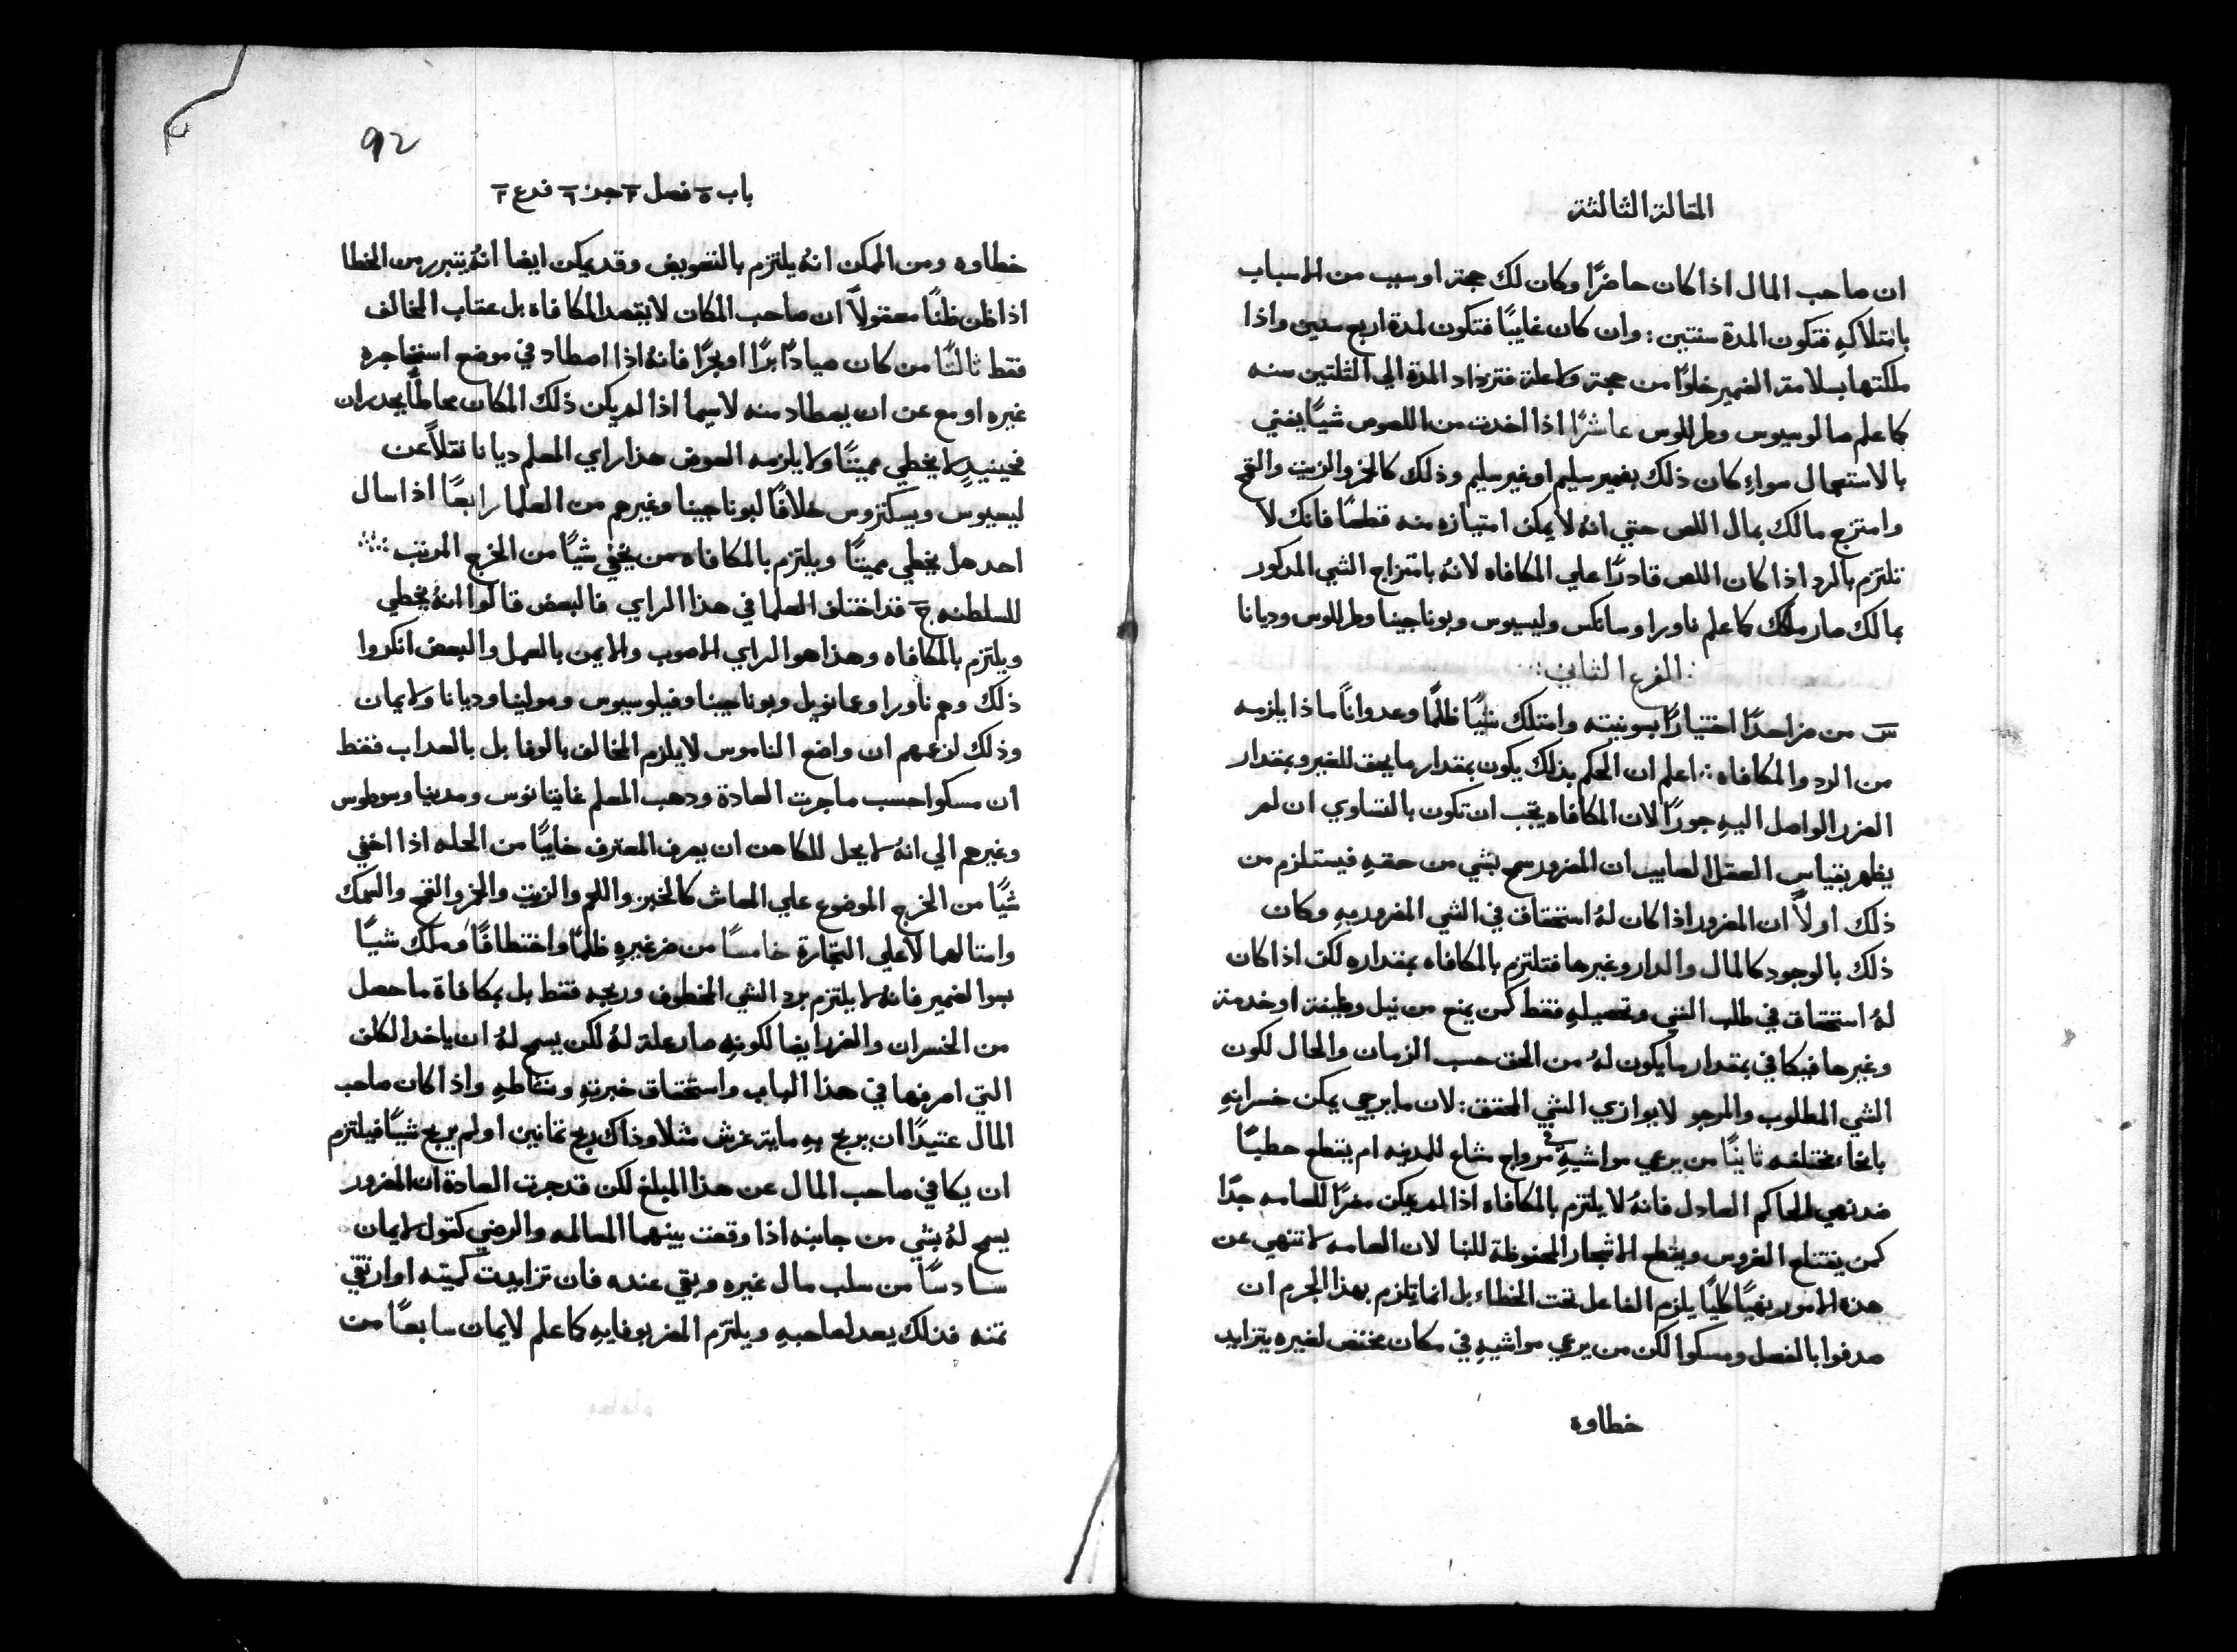 المقالة الثالثة
ان صاحب المال اذا كان حاضرًا وكان لك حجة او سبب من الاسباب
بامتلاكهِ فتكون المدة سنتين: وان كان غايبًا فتكون لمدة اربع سنين واذا
ملكتها بسلامة الضمير خلوًا من حجة ولا علة فتزداد المدة الي الثلثين سنه
كما علم صالوسيوس وطرللوس عاشرًا اذا اخدت من اللصوص شيًا يفني
بالاستعمال سواءِ كان ذلك بضمير سليم او غير سليم وذلك كالخمر والزيت والقمح
وامتزج مالك بمال اللص حتي انه لا يمكن امتيازه منه قطعًا فانك لا
تلتزم بالرد اذا كان اللص قادرًا علي المكافاه لانهُ بامتزاج الشي المدكور
بمالك صار ملكك كما علم ناورا وسانكس وليسيوس وبوناجينا وطرللوس وديانا
الفرع الثاني:
س من ضر احدًا اختيارًا بسو نيته وامتلك شيًا ظلمًا وعدوانًا ماذا يلزمه
من الرد والمكافاه: اعلم ان الحكم بذلك يكون بمقدار ما يحق للغير وبمقدار
الضرر الواصل اليهِ جورًا لان المكافاه يجب ان تكون بالتساوي ان لم
يظهر بقياس العقل الصايب ان المضرور سمح بشي من حقهِ فيستلزم من
ذلك اولاً ان المضرور اذا كان لهُ استحقاق في الشي المضرور بهِ وكان
ذلك بالوجود كالمال والدار وغيرها فتلتزم بالمكافاه بمقداره لكن اذا كان
لهُ استحقاق في طلب الشي وتحصيلهِ فقط كمن يمنع من نيل وظيفة او خدمة
وغيرها فيكافي بمقدار ما يكون لهُ من الحق حسب الزمان والحال لكون
الشي المطلوب والمرجو لا يوازي الشي المحقق: لان ما يرجي يمكن خسرانهِ
بانحاء مختلفه ثانيًا من يرعي مواشيهِ في مرواج مشاع للمدينه ام يقطع حطبًا
ضد نهي الحاكم العادل فانهُ لا يلتزم بالمكافاه اذا لم يكن مضرًا للعامه جدًا
كمن يقتلع الغروس ويقطع الاشجار المحفوظة للبنا لان العامه لا تنهي عن
هذه الامور نهيًا كليًا يلزم الفاعل تحت الخطاء بل انما يلزم بهذا الجرم ان
صدفوا بالفعل ومسكوا لكن من يرعي مواشيهِ في مكان مختص لغيره يتزايد
خطاوه
92
باب ٥ فصل ٣ جز ٦ فرع ٢
خطاوه ومن الممكن انهُ يلتزم بالتعويض وقد يمكن ايضا انهُ يتبرر من الخطا
اذا ظن ظنًا معقولاً ان صاحب المكان لا يقصد المكافاه بل عقاب المخالف
فقط ثالثًا من كان صيادًا برًا او بحرًا فانهُ اذا اصطاد في موضع استاجره
غيره او مع عن ان يصطاد منه لاسيما اذا لم يكن ذلك المكان محاطًا بجدران
فحينيدٍ لا يخطي مميتًا ولا يلزمه العوض هذا راي المعلم ديانا نقلاً عن
ليسيوس ويسكنزوس خلافًا لبوناجينا وغيرهم من العلما رابعًا اذا سال
احد هل يخطي مميتًا ويلتزم بالمكافاه من يخفي شيًا من الخرج المرتب
للسلطنه ج فقد اختلف العلما في هذا الراي فالبعض قالوا انهُ يخطي
ويلتزم بالمكافاه وهذا هو الراي الاصوب والايمن بالعمل والبعض انكروا
ذلك وهم ناورا وعمانويل وبوناجينا وفيلوسيوس ومولينا وديانا ولايمان
وذلك لزعمهم ان واضع الناموس لا يلزم المخالف بالوفا بل بالعداب فقط
ان مسكوا حسب ما جرت العادة ودهب المعلم غايتانوس ومدينا وسوطوس
وغيرهم الي انهُ لا يحل للكاهن ان يصرف المعترف خايبًا من الحله اذا اخفي
شيًا من الخرج الموضوع علي المعاش كالخبز واللحم والزيت والخمر والقمح والسمك
وامثالهما لا علي التجارة خامسًا من ضر غيرهِ ظلمًا واختطافًا وملك شيًا
بسوا لضمير فانهُ لا يلتزم برد الشي المخطوف وربحه فقط بل بمكافاة ما حصل
من الخسران والضرر ايضا لكونهِ صار علة لهُ لكن يسمح لهُ ان ياخد الكلف
التي اصرفها في هذا الباب واستحقاق خبرتهِ ونشاطهِ واذا كان صاحب
المال عتيدًا ان يربح بهِ ماية غرش مثلا وذاك ربح تمانين او لم يربح شيًا فيلتزم
ان يكافي صاحب المال عن هذا المبلغ لكن قد جرت العادة ان المضرور
يسمح لهُ بشي من جانبه اذا وقعت بينهما المصالحه والرضي كقول لايمان
سادسًا من سلب مال غيره وبقي عنده فان تزايدت كميته او ارتقي
تمنه فذلك يعد لصاحبهِ ويلتزم المضر بوفايهِ كما علم لايمان سابعًا من